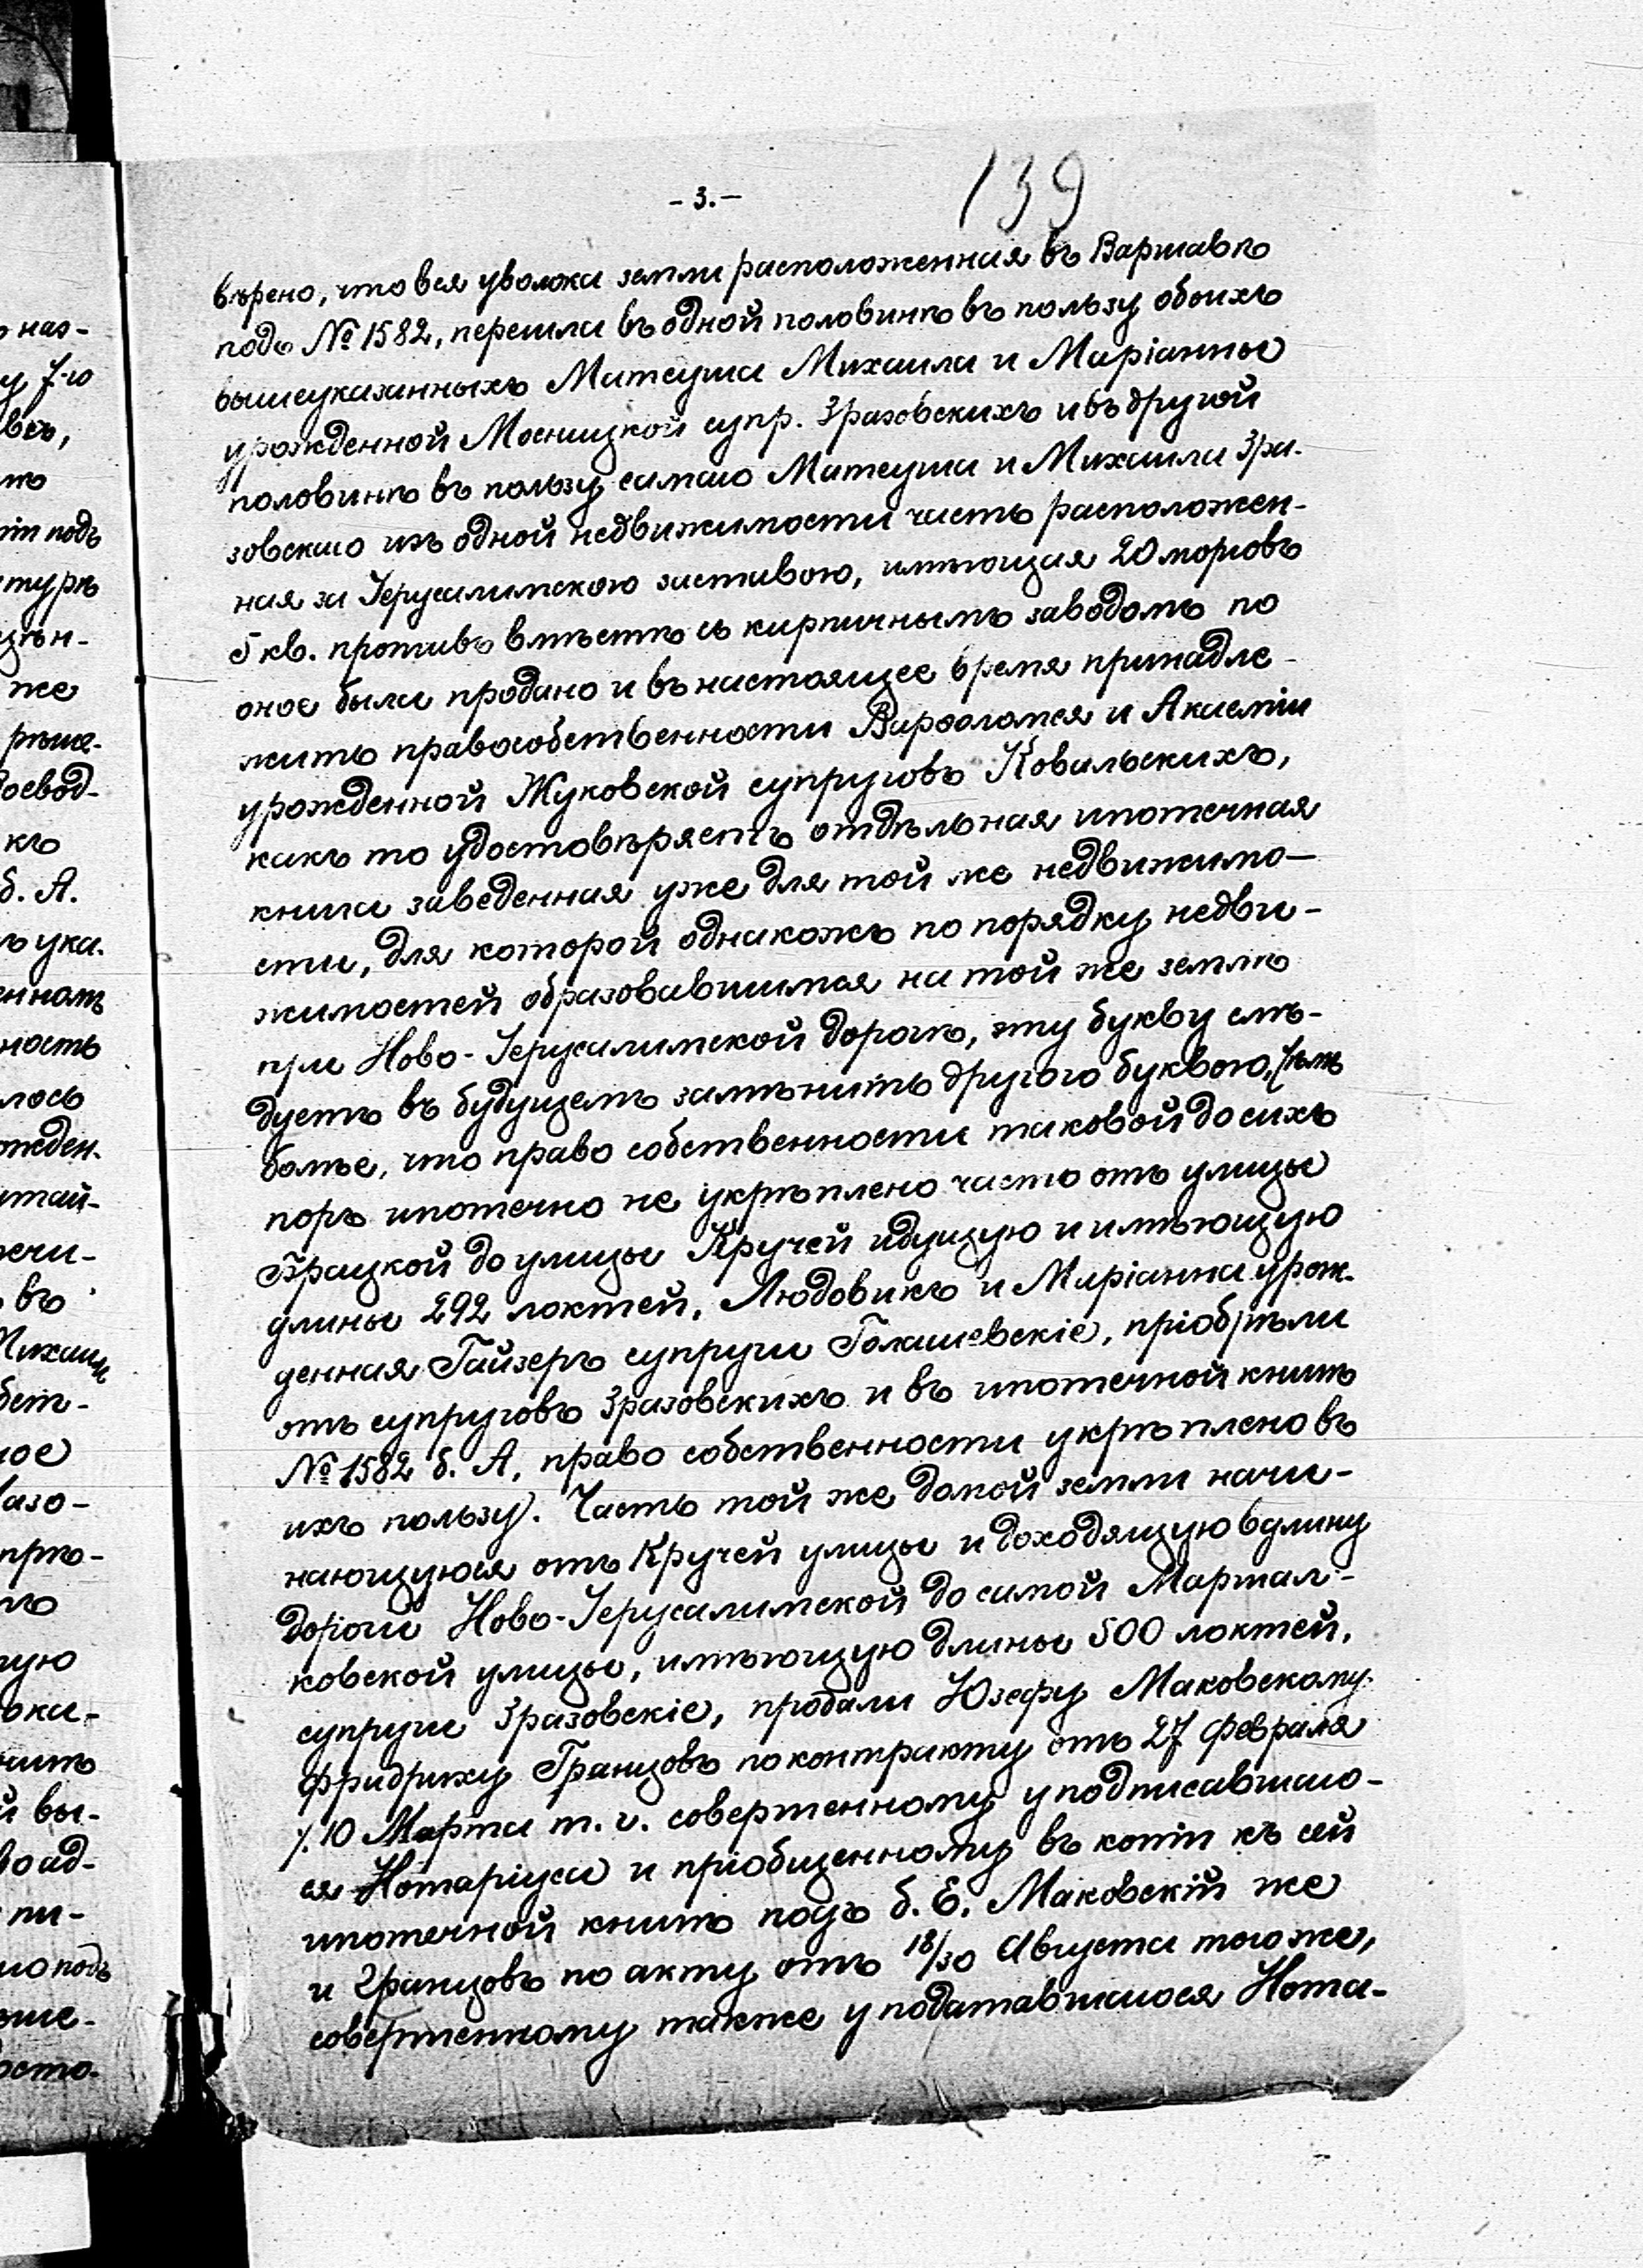 - 3. -
139
вѣрено, что вся уволока земли расположенная въ Варшавѣ
подъ № 1582, перешла въ одной половинѣ въ пользу обоихъ
вышеуказанныхъ Матеуша Михаила и Маріанны
урожденной Мосницкой супр. Зразовскихъ и въ другой
половинѣ въ пользу самаго Матеуша и Михаила Зра-
зовскаго изъ одной недвижимости часть расположен-
ная за Іерусалимскою заставою, имѣющая 20 морговъ
5 кв. протывъ вмѣстѣ съ кирпичнымъ заводомъ по
оное была продано и въ настоящее время принадле-
житъ правособственности Варѳоломея и Акасміи
урожденной Жуковской супруговъ Ковальскихъ,
какъ то удостовѣряетъ отдѣльная ипотечная
книга заведенная уже для той же недвижимо-
сти, для которой однакожъ по порядку недви-
жимостей образовавшимся на той же землѣ
при Ново-Іерусалимской дорогѣ, эту букву слѣ-
дуетъ въ будущемъ замѣнить другою буквою, тѣмъ
болѣе, что право собственности таковой до сихъ
поръ ипотечно не укрѣплено часто отъ улицы
Брацкой до улицы Кручей идущую и имѣющую
длины 292 локтей. Людовикъ и Маріанна урож-
денная Гайзеръ супруги Голашевскіе, пріобрѣли
отъ супруговъ Зразовскихъ и въ ипотечной книгѣ
№ 1582 б. А, право собственности укрѣплено въ
ихъ пользу. Часть той же домой земли начи-
нающуюся отъ Кручей улицы и доходящую вдлину
дороги Ново-Іерусалимской до самой Маршал-
ковской улицы, имѣющую длины 500 локтей,
супруги Зразовскіе, продали Юзефу Маковскому
Фридриху Гранцовъ по контракту отъ 27 февраля
/. 10 Марта т. г. совершенному у подписавшаго-
ся Нотаріуса и пріобщенному въ копіи къ сей
ипотечной книгѣ подъ б. Е. Маковскій же
и Гранцовъ по акту отъ 18/30 Августа тогоже,
совершенному также у податавшагося Нота-